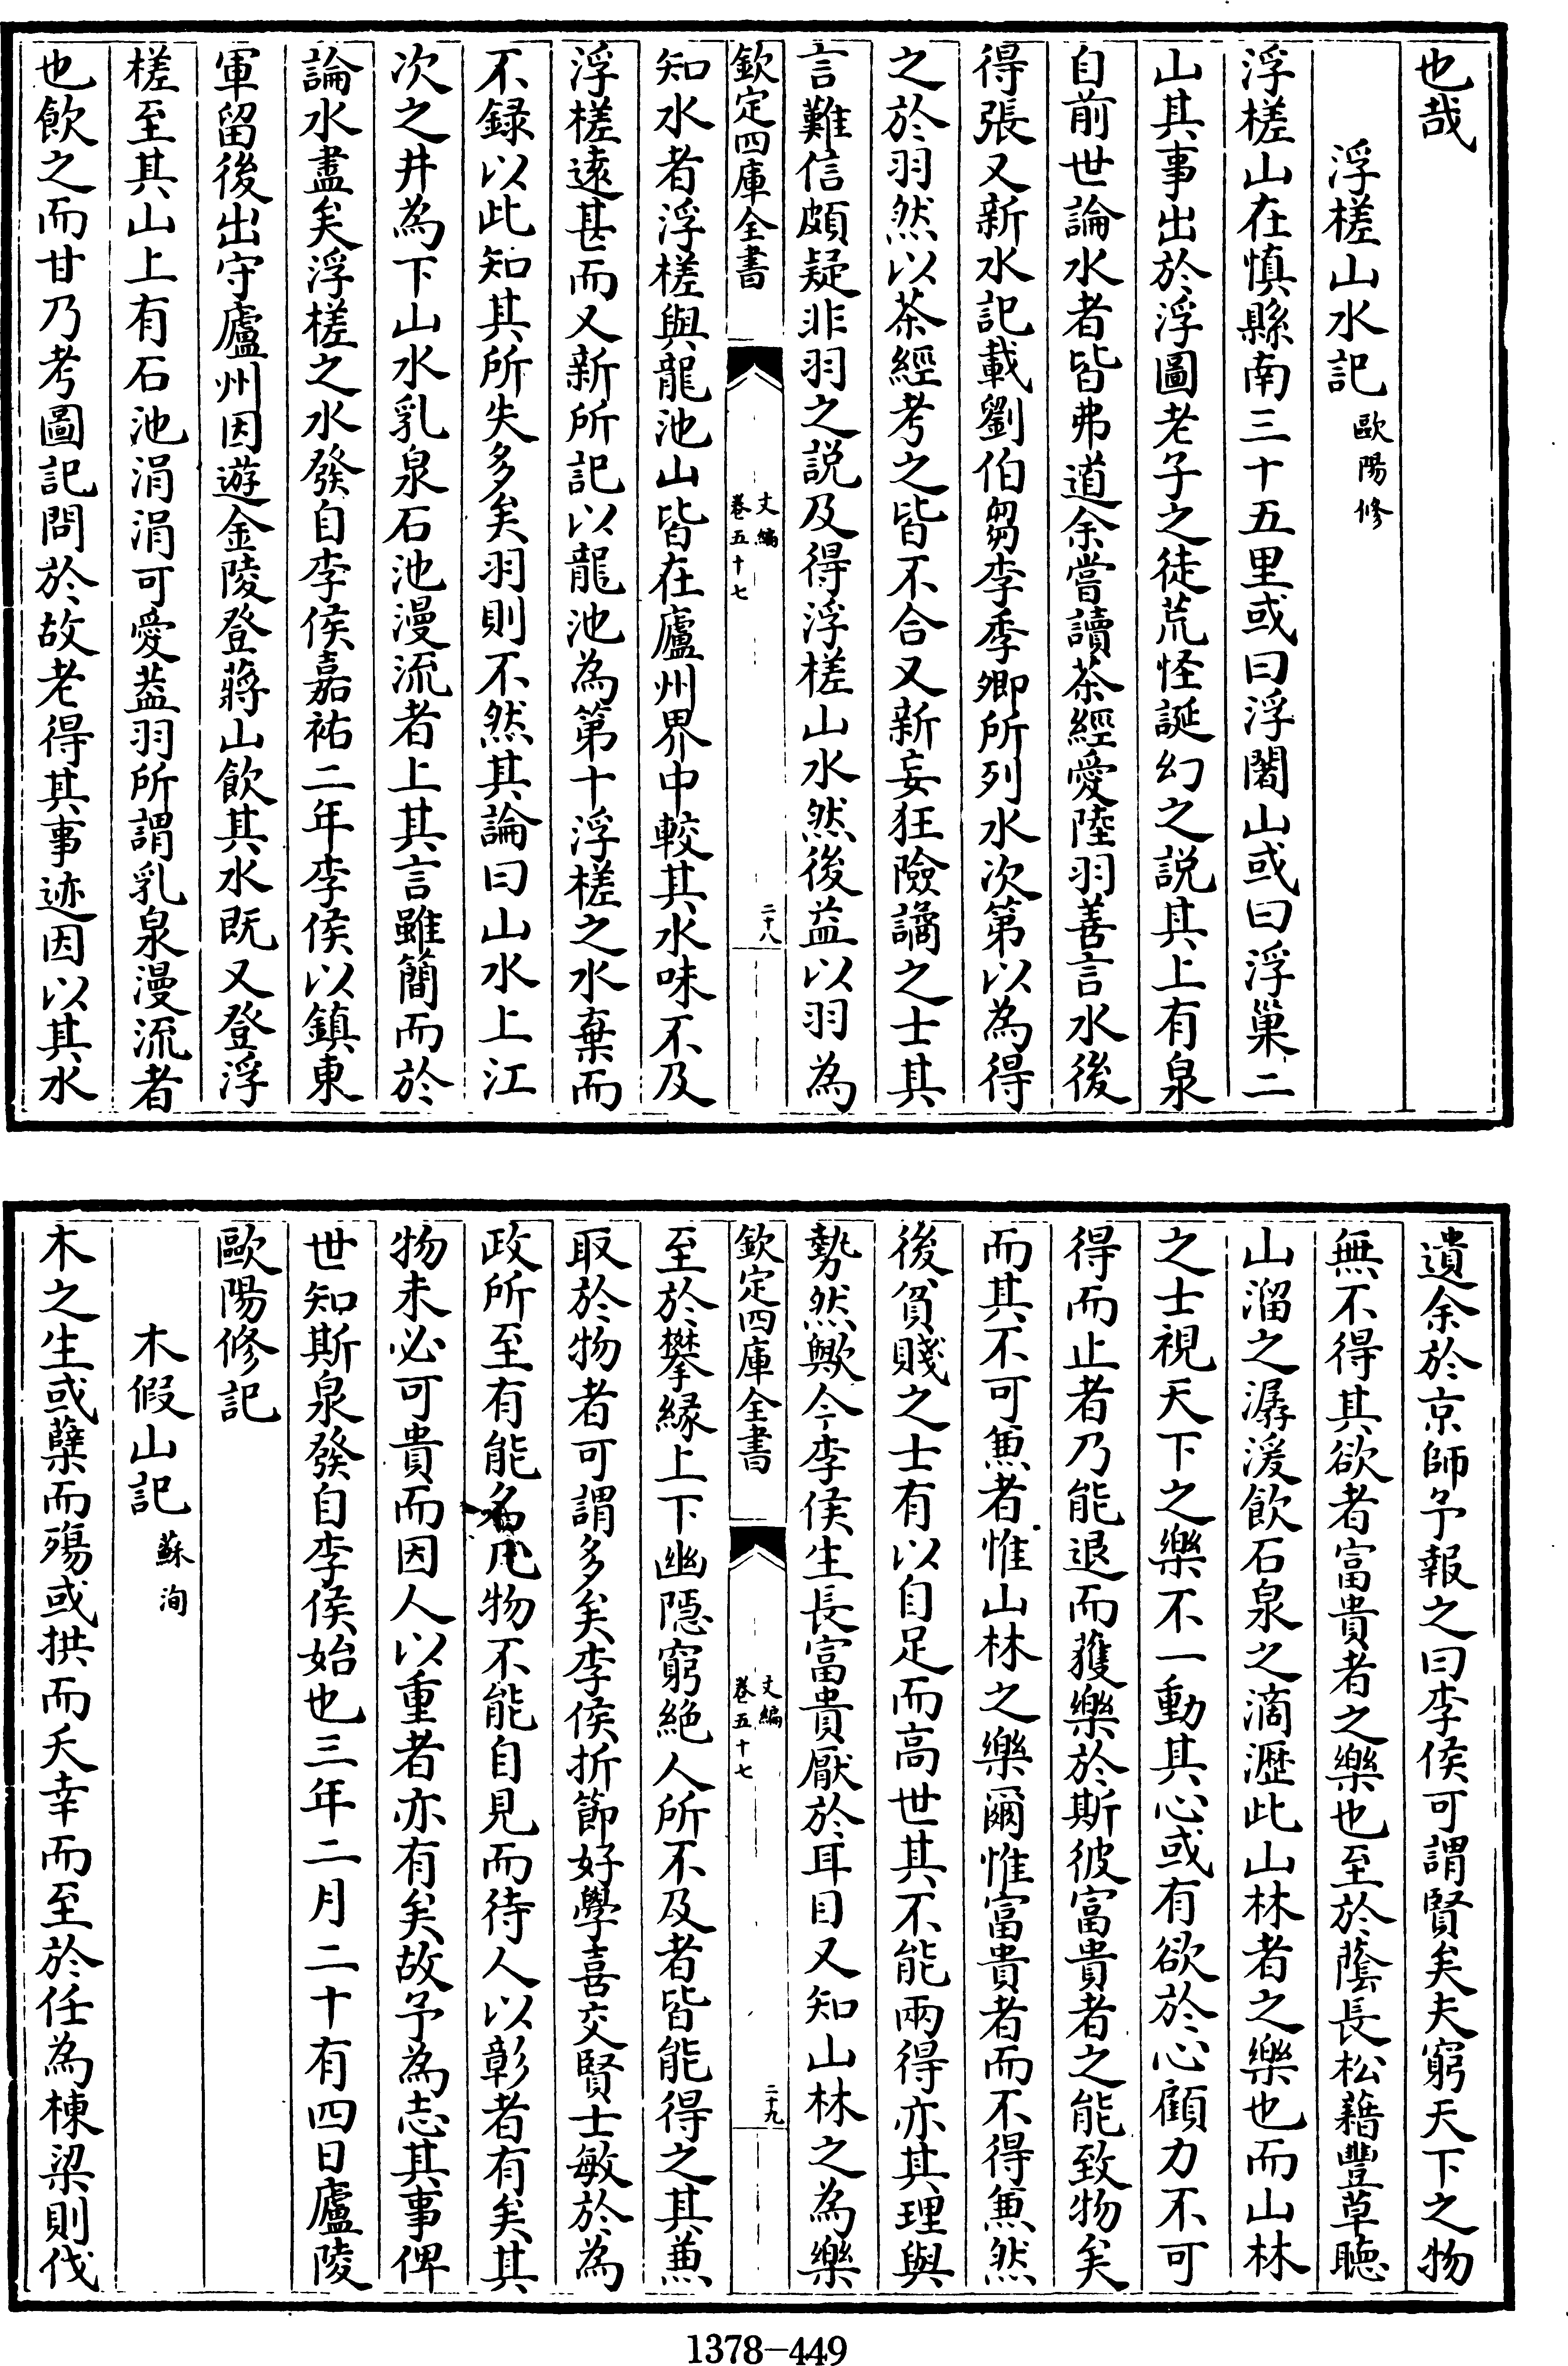 也哉
浮槎山水記 歐陽修
浮槎山在慎縣南三十五里或曰浮闍山或曰浮巢二
山其事出於浮圖老子之徒荒怪誕幻之説其上有泉
自前世論水者皆弗道余嘗讀茶經愛陸羽善言水後
得張又新水記載劉伯芻李季卿所列水次第以為得
之於羽然以茶經考之皆不合又新妄狂險譎之士其
言難信頗疑非羽之説及得浮槎山水然後益以羽為
欽定四庫全書 文編 卷五十七 二十八
知水者浮槎與龍池山皆在廬州界中較其水味不及
浮槎遠甚而又新所記以龍池為第十浮槎之水棄而
不録以此知其所失多矣羽則不然其論曰山水上江
次之井為下山水乳泉石池漫流者上其言雖簡而於
論水盡矣浮槎之水發自李侯嘉祐二年李侯以鎮東
軍留後出守廬州因遊金陵登蔣山飲其水既又登浮
槎至其山上有石池涓涓可愛葢羽所謂乳泉漫流者
也飲之而甘乃考圖記問於故老得其事迹因以其水
遺余於京師予報之曰李侯可謂賢矣夫窮天下之物
無不得其欲者富貴者之樂也至於蔭長松藉豐草聽
山溜之潺湲飲石泉之滴瀝此山林者之樂也而山林
之士視天下之樂不一動其心或有欲於心顧力不可
得而止者乃能退而獲樂於斯彼富貴者之能致物矣
而其不可兼者惟山林之樂爾惟富貴者而不得兼然
後貧賤之士有以自足而高世其不能兩得亦其理與
勢然歟今李侯生長富貴厭於耳目又知山林之為樂
欽定四庫全書 文編 卷五十七 二十九
至於攀縁上下幽隱窮絶人所不及者皆能得之其兼
取於物者可謂多矣李侯折節好學喜交賢士敏於為
政所至有能名凡物不能自見而待人以彰者有矣其
物未必可貴而因人以重者亦有矣故予為志其事俾
世知斯泉發自李侯始也三年二月二十有四日廬陵
歐陽修記
木假山記 蘇洵
木之生或蘖而殤或拱而夭幸而至於任為棟梁則伐
1378-449